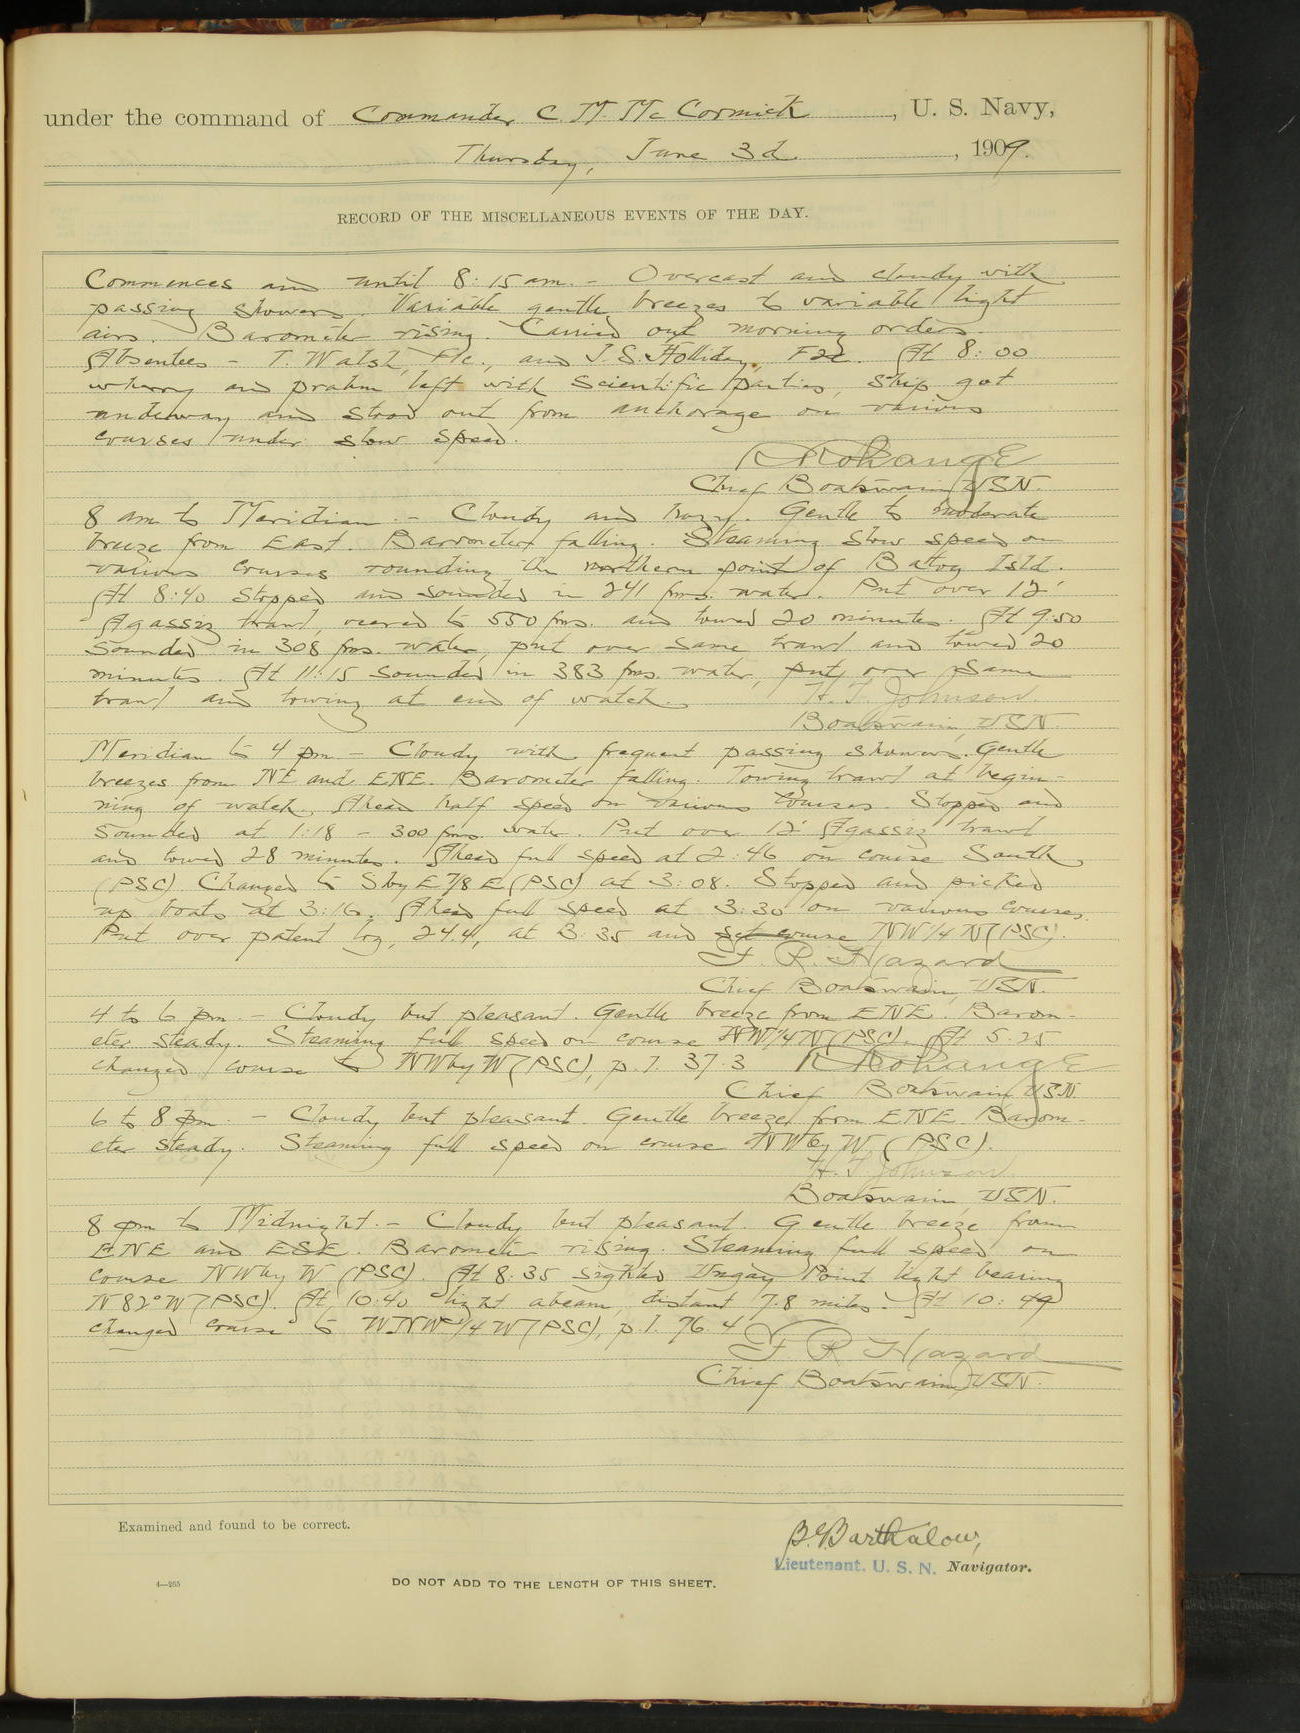 under the command of Commander C. M. McCormick, U. S. Navy,
Thursday, June 3d, 1909.
RECORD OF THE MISCELLANEOUS EVENTS OF THE DAY.
Commences and until 8:15 am. - Overcast and cloudy with
passing showers. Variable gentle breezes to variable light
airs. Barometer rising. Carried out morning orders.
Absentees - T. Walsh, F1c., and J. S. Holliday, F2c. At 8:00
wherry and prahm left with scientific parties, ship got
underway and stood out from anchorage on various
courses under slow speed.
Chief Boatswain, USN.
8 am to Meridian. - Cloudy and hazy. Gentle to moderate
breeze from East. Barometer falling. Steaming slow speed on
various courses rounding the northern point of Batog Isld.
At 8:40 stopped and sounded in 241 fms. water. Put over 12'
Agassiz trawl, veered to 550 fms. and towed 20 minutes. At 9.50
sounded in 308 fms. water, put over same trawl and towed 20
minutes. At 11:15 sounded in 383 fms. water, put over same
trawl and towing at end of watch.
H. F. Johnson
Boatswain, USN.
Meridian to 4 pm - Cloudy with frequent passing showers. Gentle
breezes from NE and ENE. Barometer falling. Towing trawl at begin-
ning of watch. Ahead half speed on various courses. Stopped and
sounded at 1:18 - 300 fms. water. Put over 12' Agassiz trawl
and towed 28 minutes. Ahead full speed at 2:46 on course South
(PSC). Changed to S by E 7/8 E (PSC) at 3:08. Stopped and picked
up boats at 3:16. Ahead full speed at 3:30 on various courses.
Put over patent log, 24.4, at 3:35 and set course NW 1/4 N (PSC).
F. R. Hazard
Chief Boatswain, USN.
4 to 6 pm. - Cloudy but pleasant. Gentle breeze from ENE. Barom-
eter steady. Steaming full speed on course NW 1/4 N (PSC). At 5.25
changed course to NW by W (PSC), p.l. 37.3
Chief Boatswain USN.
6 to 8 pm. - Cloudy but pleasant. Gentle breeze from ENE. Barom-
eter steady. Steaming full speed on course NW by W (PSC).
H. F. Johnson
Boatswain, USN.
8 pm to Midnight. - Cloudy but pleasant. Gentle breeze from
ENE and ESE. Barometer rising. Steaming full speed on
course NW by W (PSC). At 8:35 sighted Ungay Point light bearing
N 82° W (PSC). At 10:40 light abeam, distant 7.8 miles. At 10:49
changed course to WNW 1/4 W (PSC), p.l. 76.4
F R Hazard
Chief Boatswain, USN.
Examined and found to be correct.
Barthalow,
Lieutenant. U. S. N. Navigator.
4—265
DO NOT ADD TO THE LENGTH OF THIS SHEET.